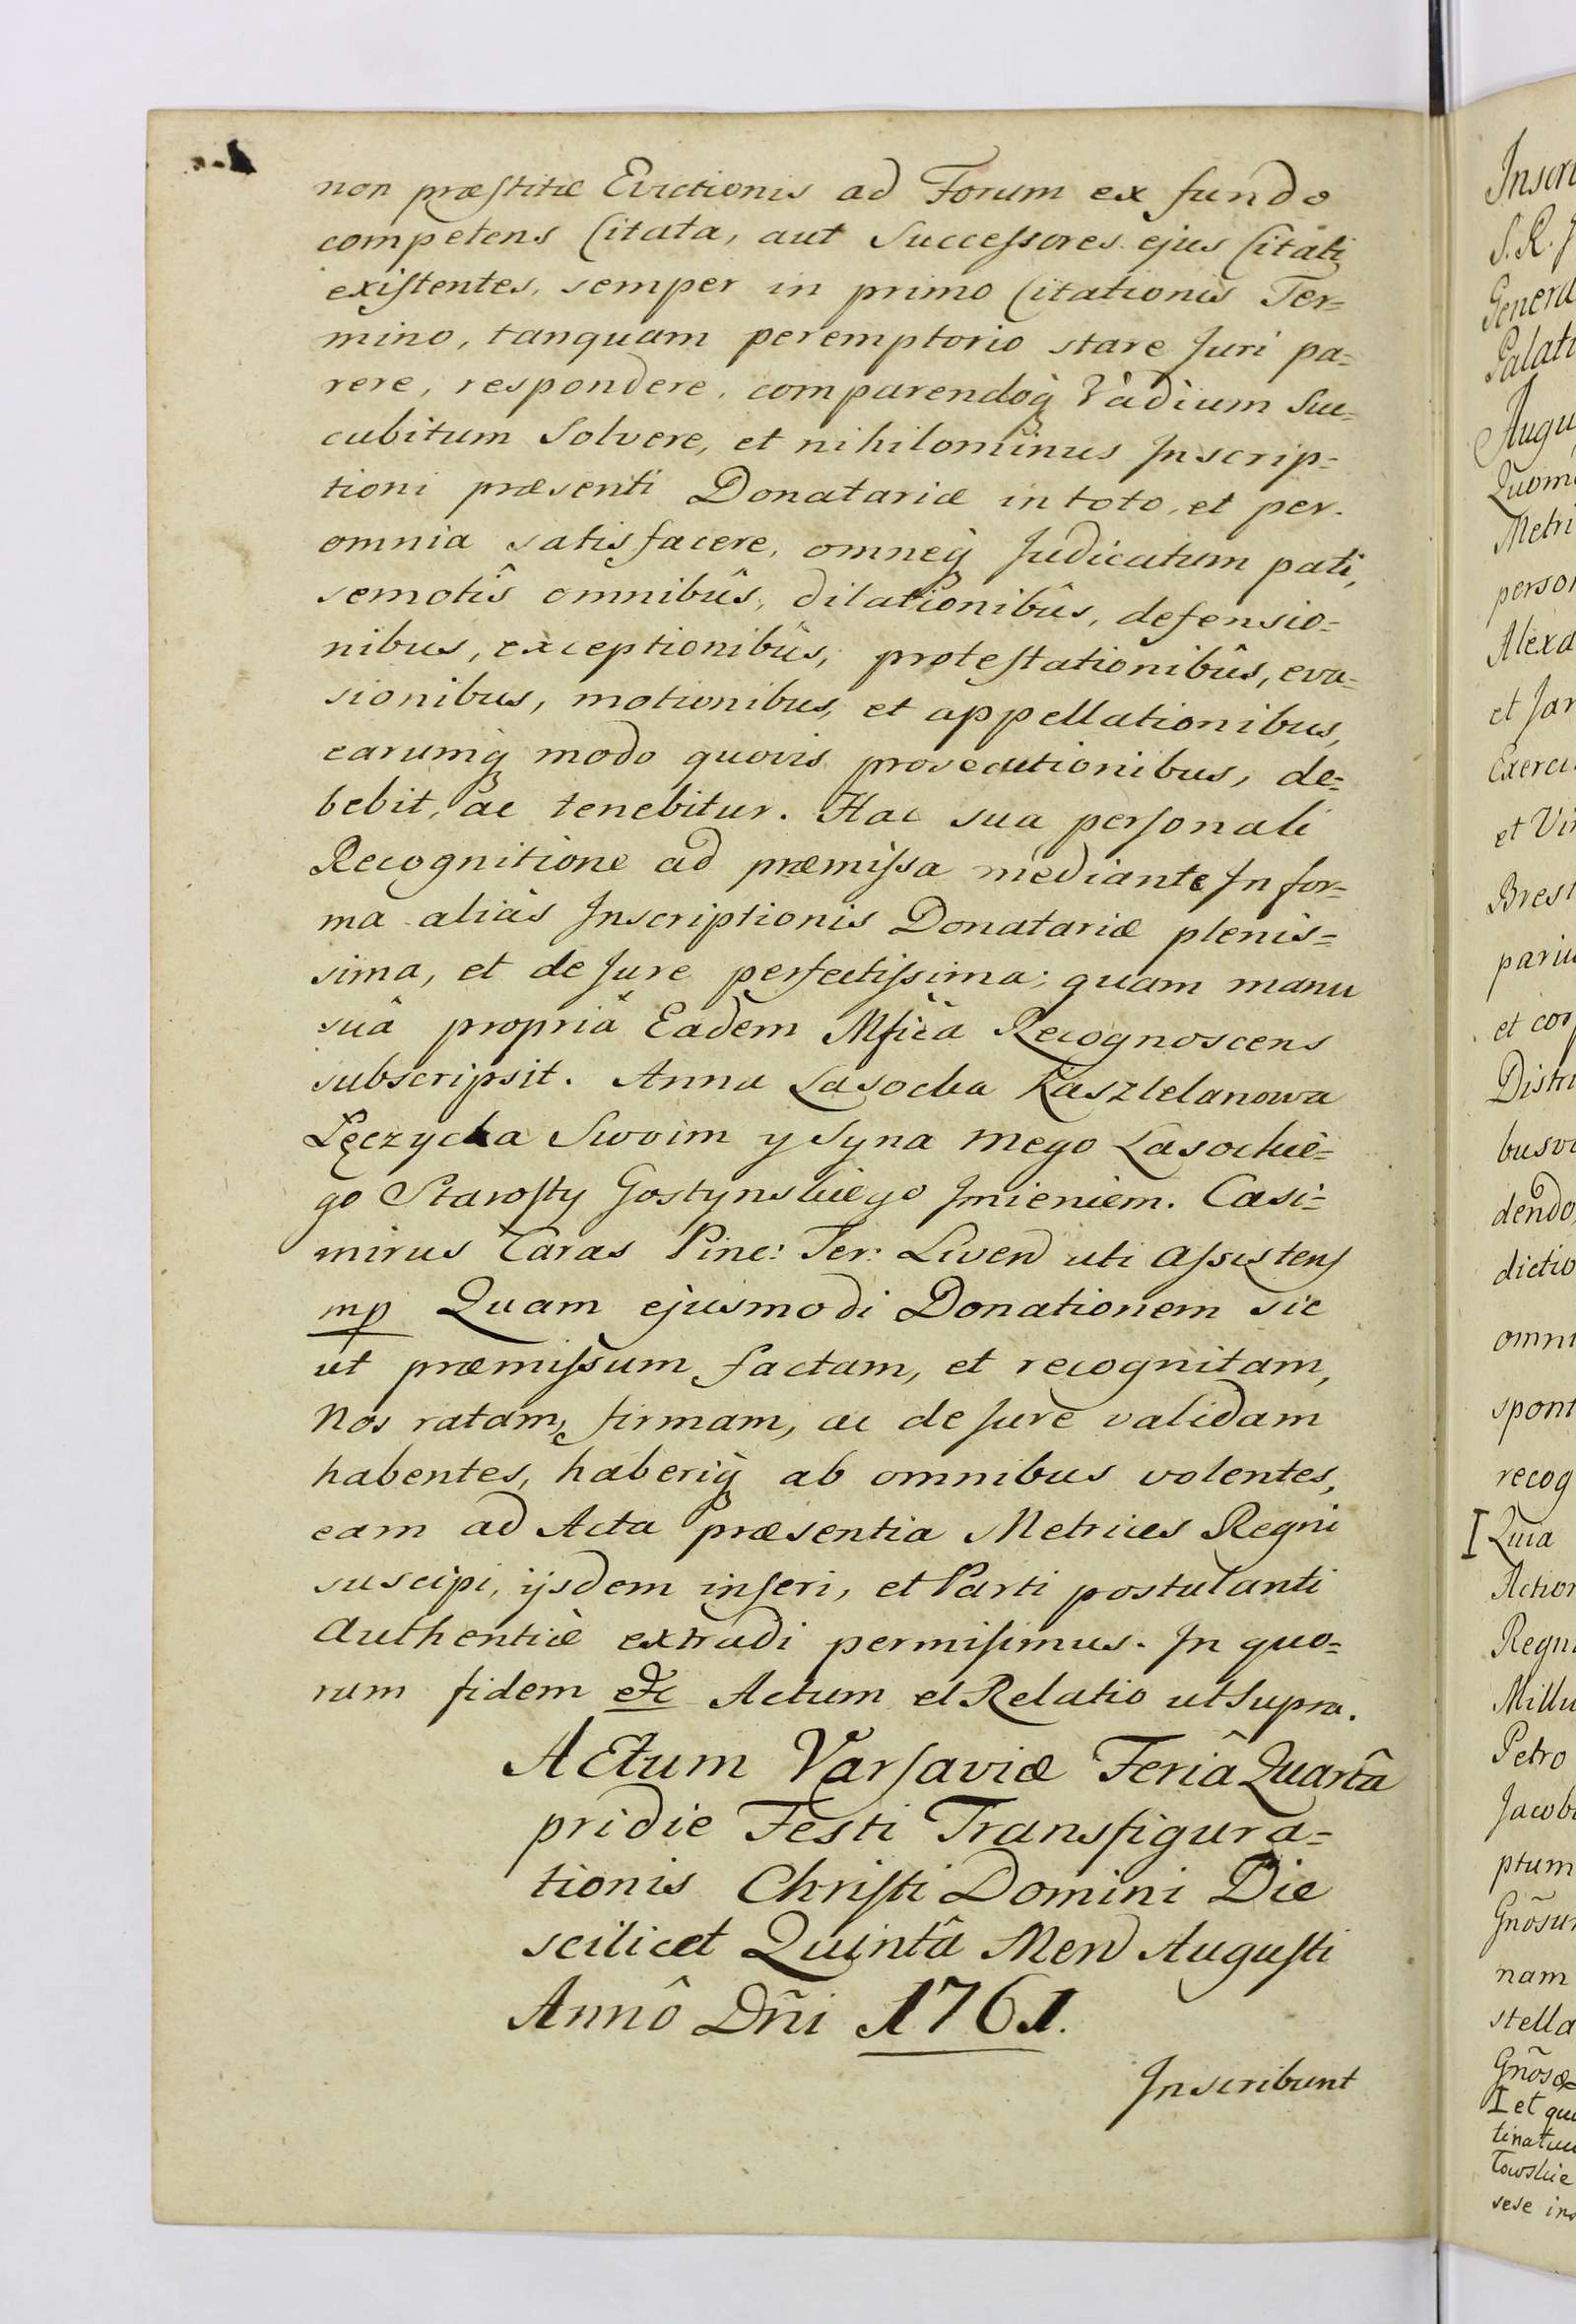 non præstitæ Evictionis ad Forum ex fundo
competens Citata, aut Successores ejus Citati
existentes, semper in primo Citationis Ter=
mino, tanquam peremptorio stare Juri pa=
rere, respondere, comparendoq̀ Vadium Suc=
cubitum Solvere, et nihilominus Inscrip=
tioni præsenti Donatariæ in toto, et per
omnia satisfacere, omneq̀ Judicatum pati,
semotîs omnibûs, dilationibûs, defensio=
nibus, exceptionibûs, protestationibûs, eva=
sionibus, motionibus, et appellationibus,
earumq̀ modo quovis prosecutionibus, de=
bebit, ac tenebitur. Hac sua personali
Recognitione ad præmissa mediante In for=
ma aliàs Inscriptionis Donatariæ plenis=
sima, et de Jure perfectissima; quam manu
suâ propriâ Eadem Mficã Recognoscens
subscripsit. Anna Lasocka Kasztelanowa
Łęczycka Swoim y Syna mego Lasockie=
go Starosty Gostynskiego Jmieniem. Casi=
mirus Taras Pinc: Ter: Livend uti Assistens
mp Quam ejusmodi Donationem sic
ut præmissum factam, et recognitam,
Nos ratam, firmam, ac de Jure validam
habentes, haberiq̀ ab omnibus volentes,
eam ad Acta præsentia Metrices Regni
suscipi, ijsdem inseri, et Parti postulanti
Authenticè extradi permisimus. In quo=
rum fidem etc Actum et Relatio ut Supra.
Actum Varsaviæ Feriâ Quartâ
pridie Festi Transfigura=
tionis Christi Domini Die
scilicet Quintâ Mens Augusti
Annô Dñi 1761.
Inscribunt
S. R.
Alexa
et Jar
et Vi
et cor
omni
spont
recog
I Quia
Petro
ptum
nam
I et qu